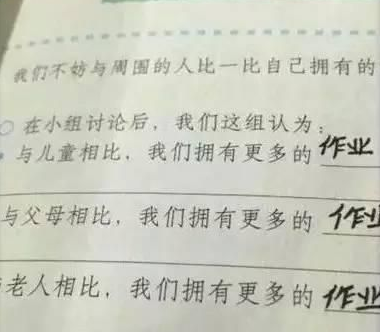 我们不妨与周围的人比一比自己拥有的
○ 在小组讨论后，我们这组认为：
与儿童相比，我们拥有更多的 作业
与父母相比，我们拥有更多的 作业
老人相比，我们拥有更多的 作业